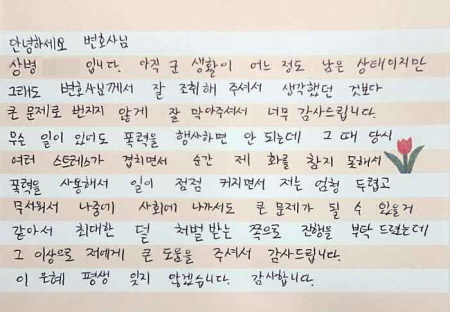 안녕하세요 변호사님
상병 입니다. 아직 군 생활이 어느 정도 남은 상태이지만
그래도 변호사님께서 잘 조취해 주셔서 생각했던 것보다
큰 문제로 번지지 않게 잘 막아주셔서 너무 감사드립니다.
무슨 일이 있어도 폭력을 행사하면 안 되는데 그 때 당시
여러 스트레스가 겹치면서 순간 제 화를 참지 못해서
폭력을 사용해서 일이 점점 커지면서 저는 엄청 두렵고
무서워서 나중에 사회에 나가서도 큰 문제가 될 수 있을거
같아서 최대한 덜 처벌 받는 쪽으로 진행을 부탁 드렸는데
그 이상으로 저에게 큰 도움을 주셔서 감사드립니다.
이 은혜 평생 잊지 않겠습니다. 감사합니다.